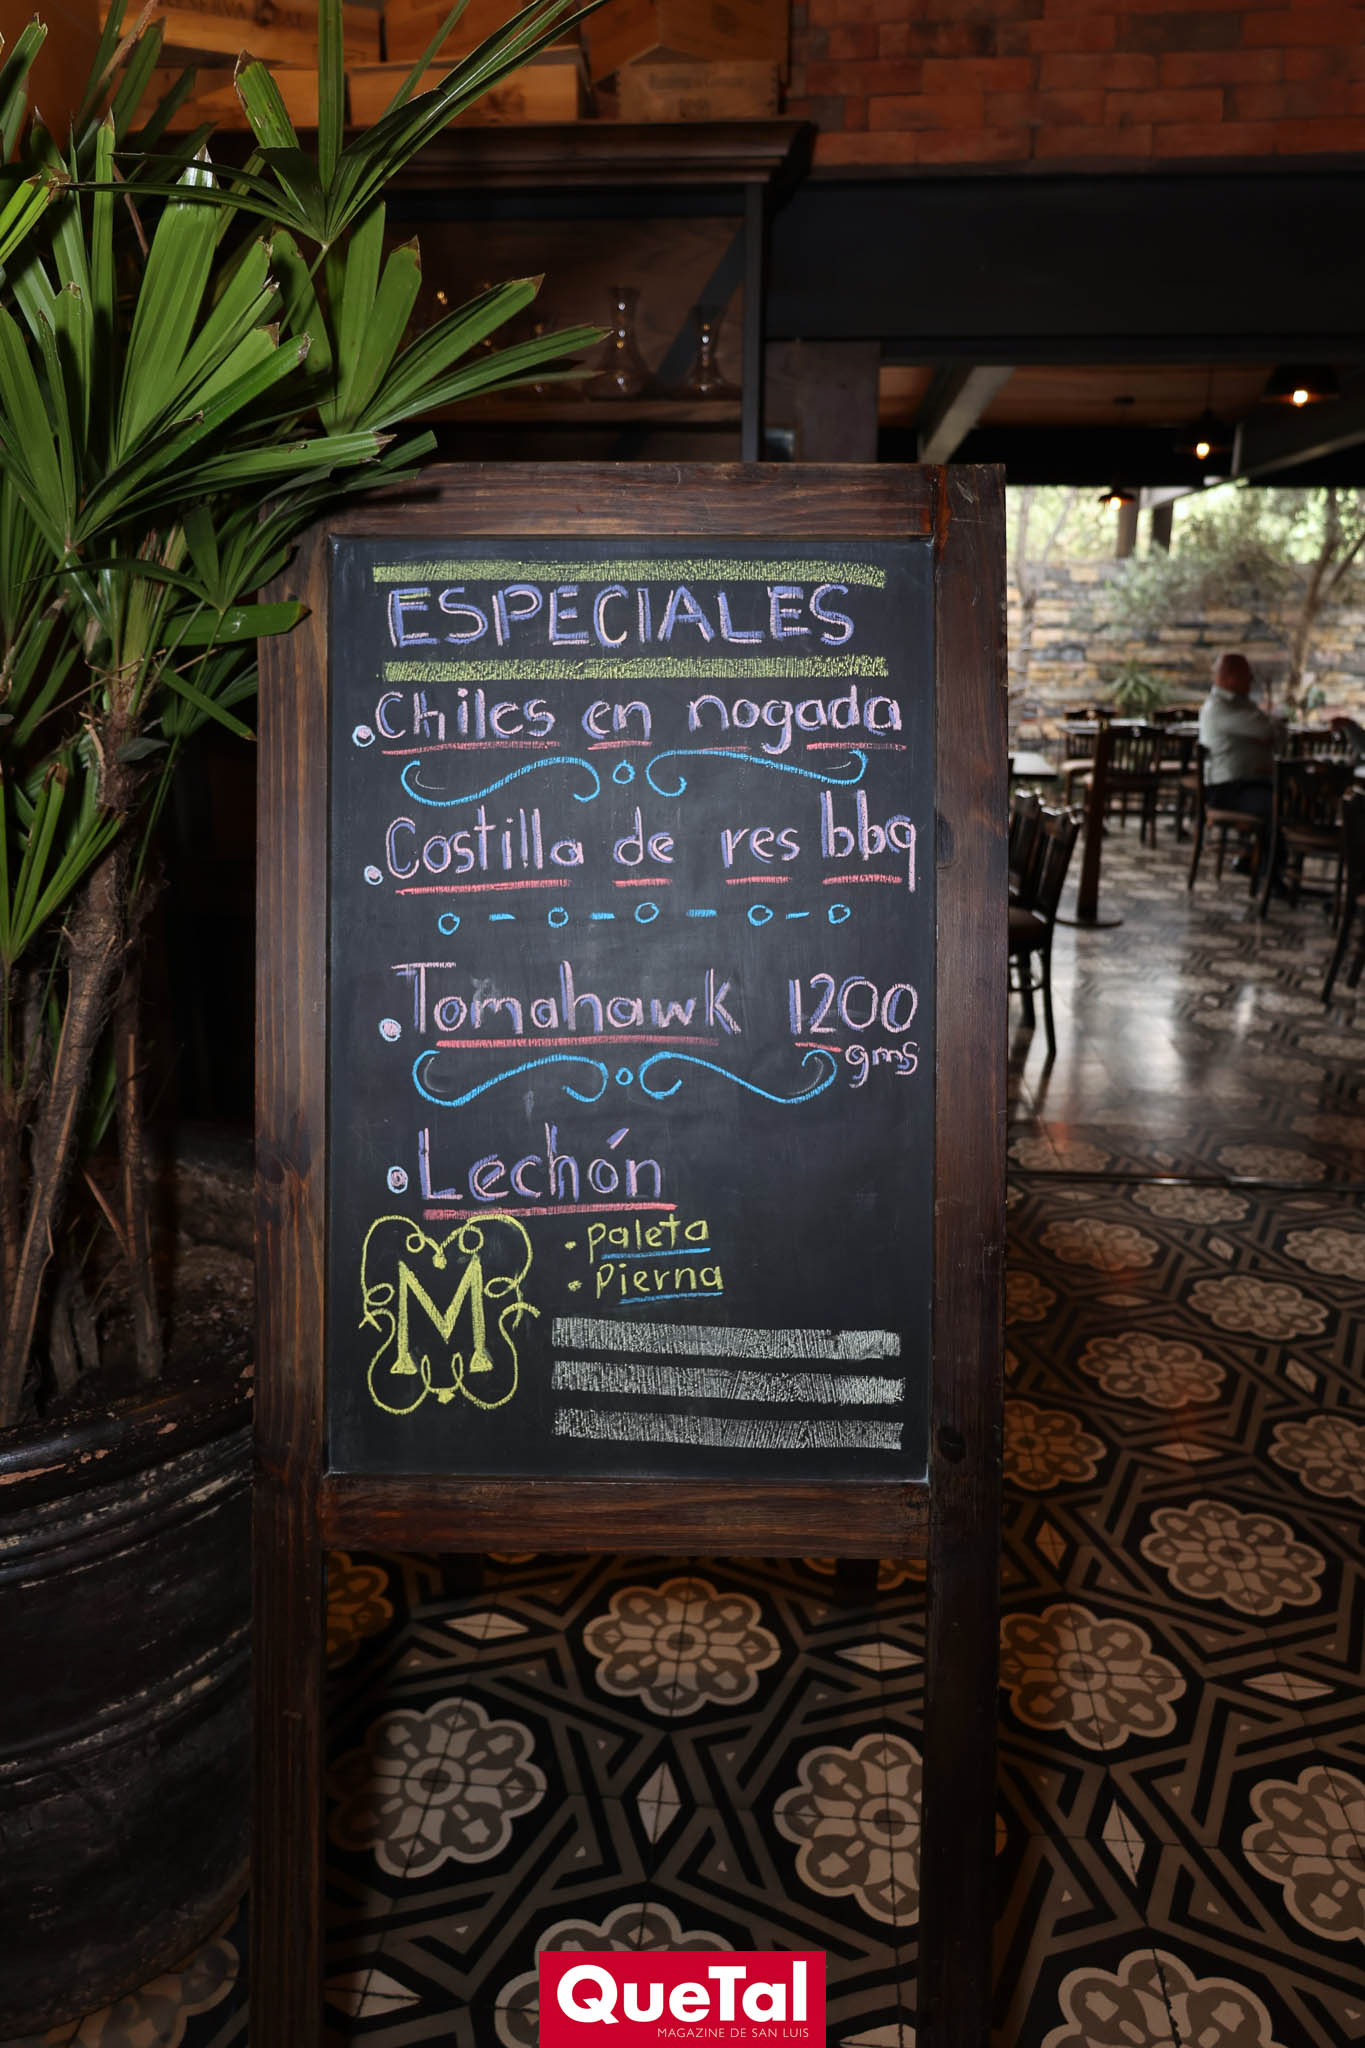 RESERVA
ESPECIALES
Chiles en nogada
Costilla de res bbq
Tomahawk 1200
gms
Lechón
• Paleta
• Pierna
M
QueTal
MAGAZINE DE SAN LUIS